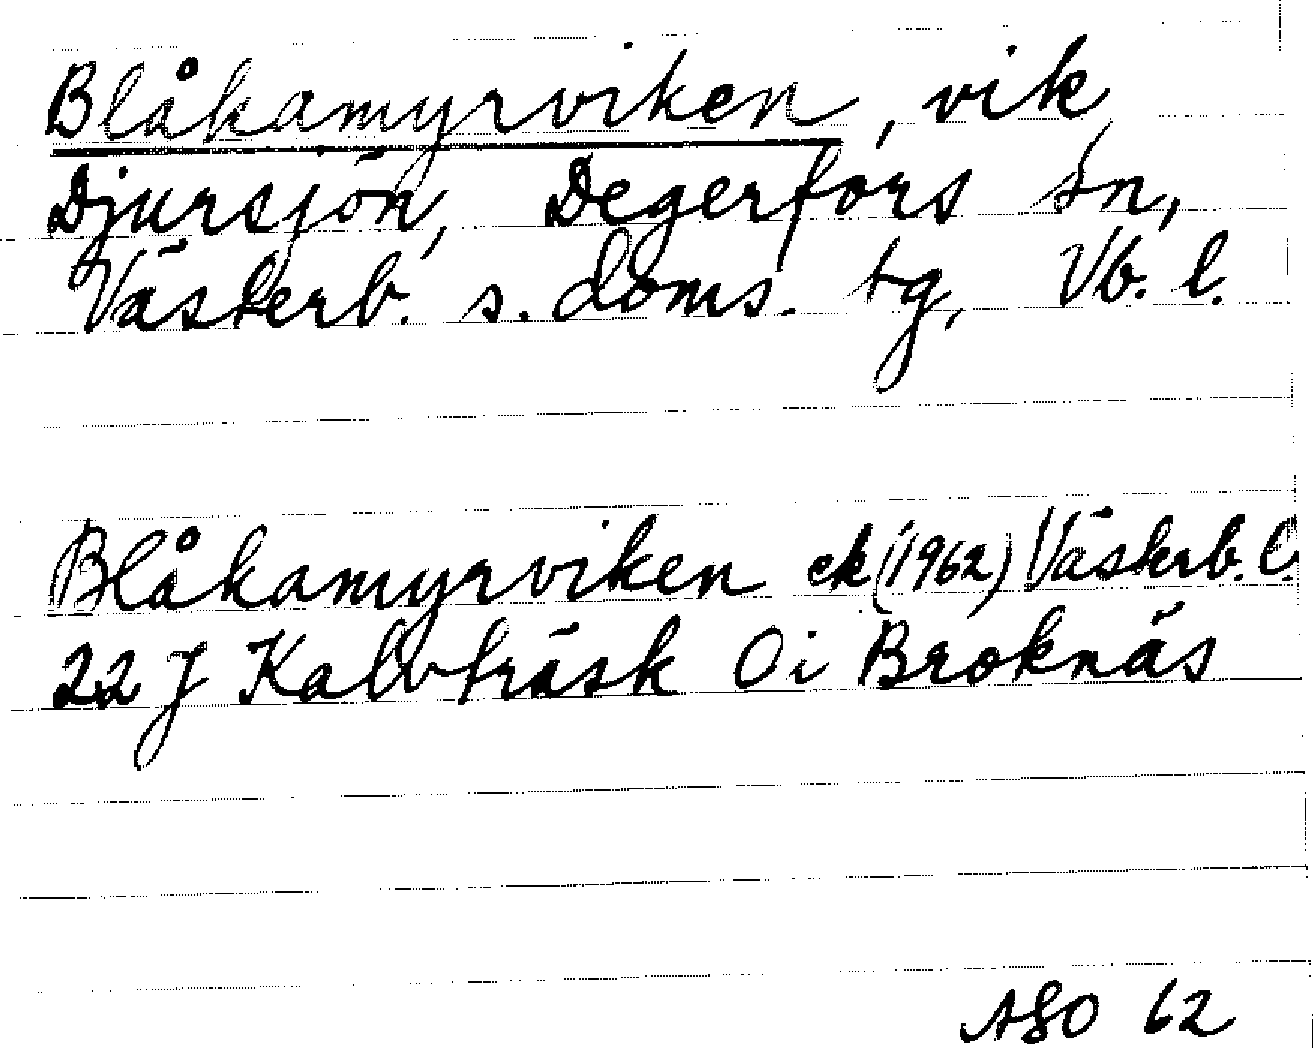 Blåkamyrviken, vik,
Djursjön, Degerfors sn,
Västerb. s. doms. tg, Vb. l.
Blåkamyrviken ek (1962) Västerb. l.
22 J Kalvträsk 0 i Broknäs
ASO 62